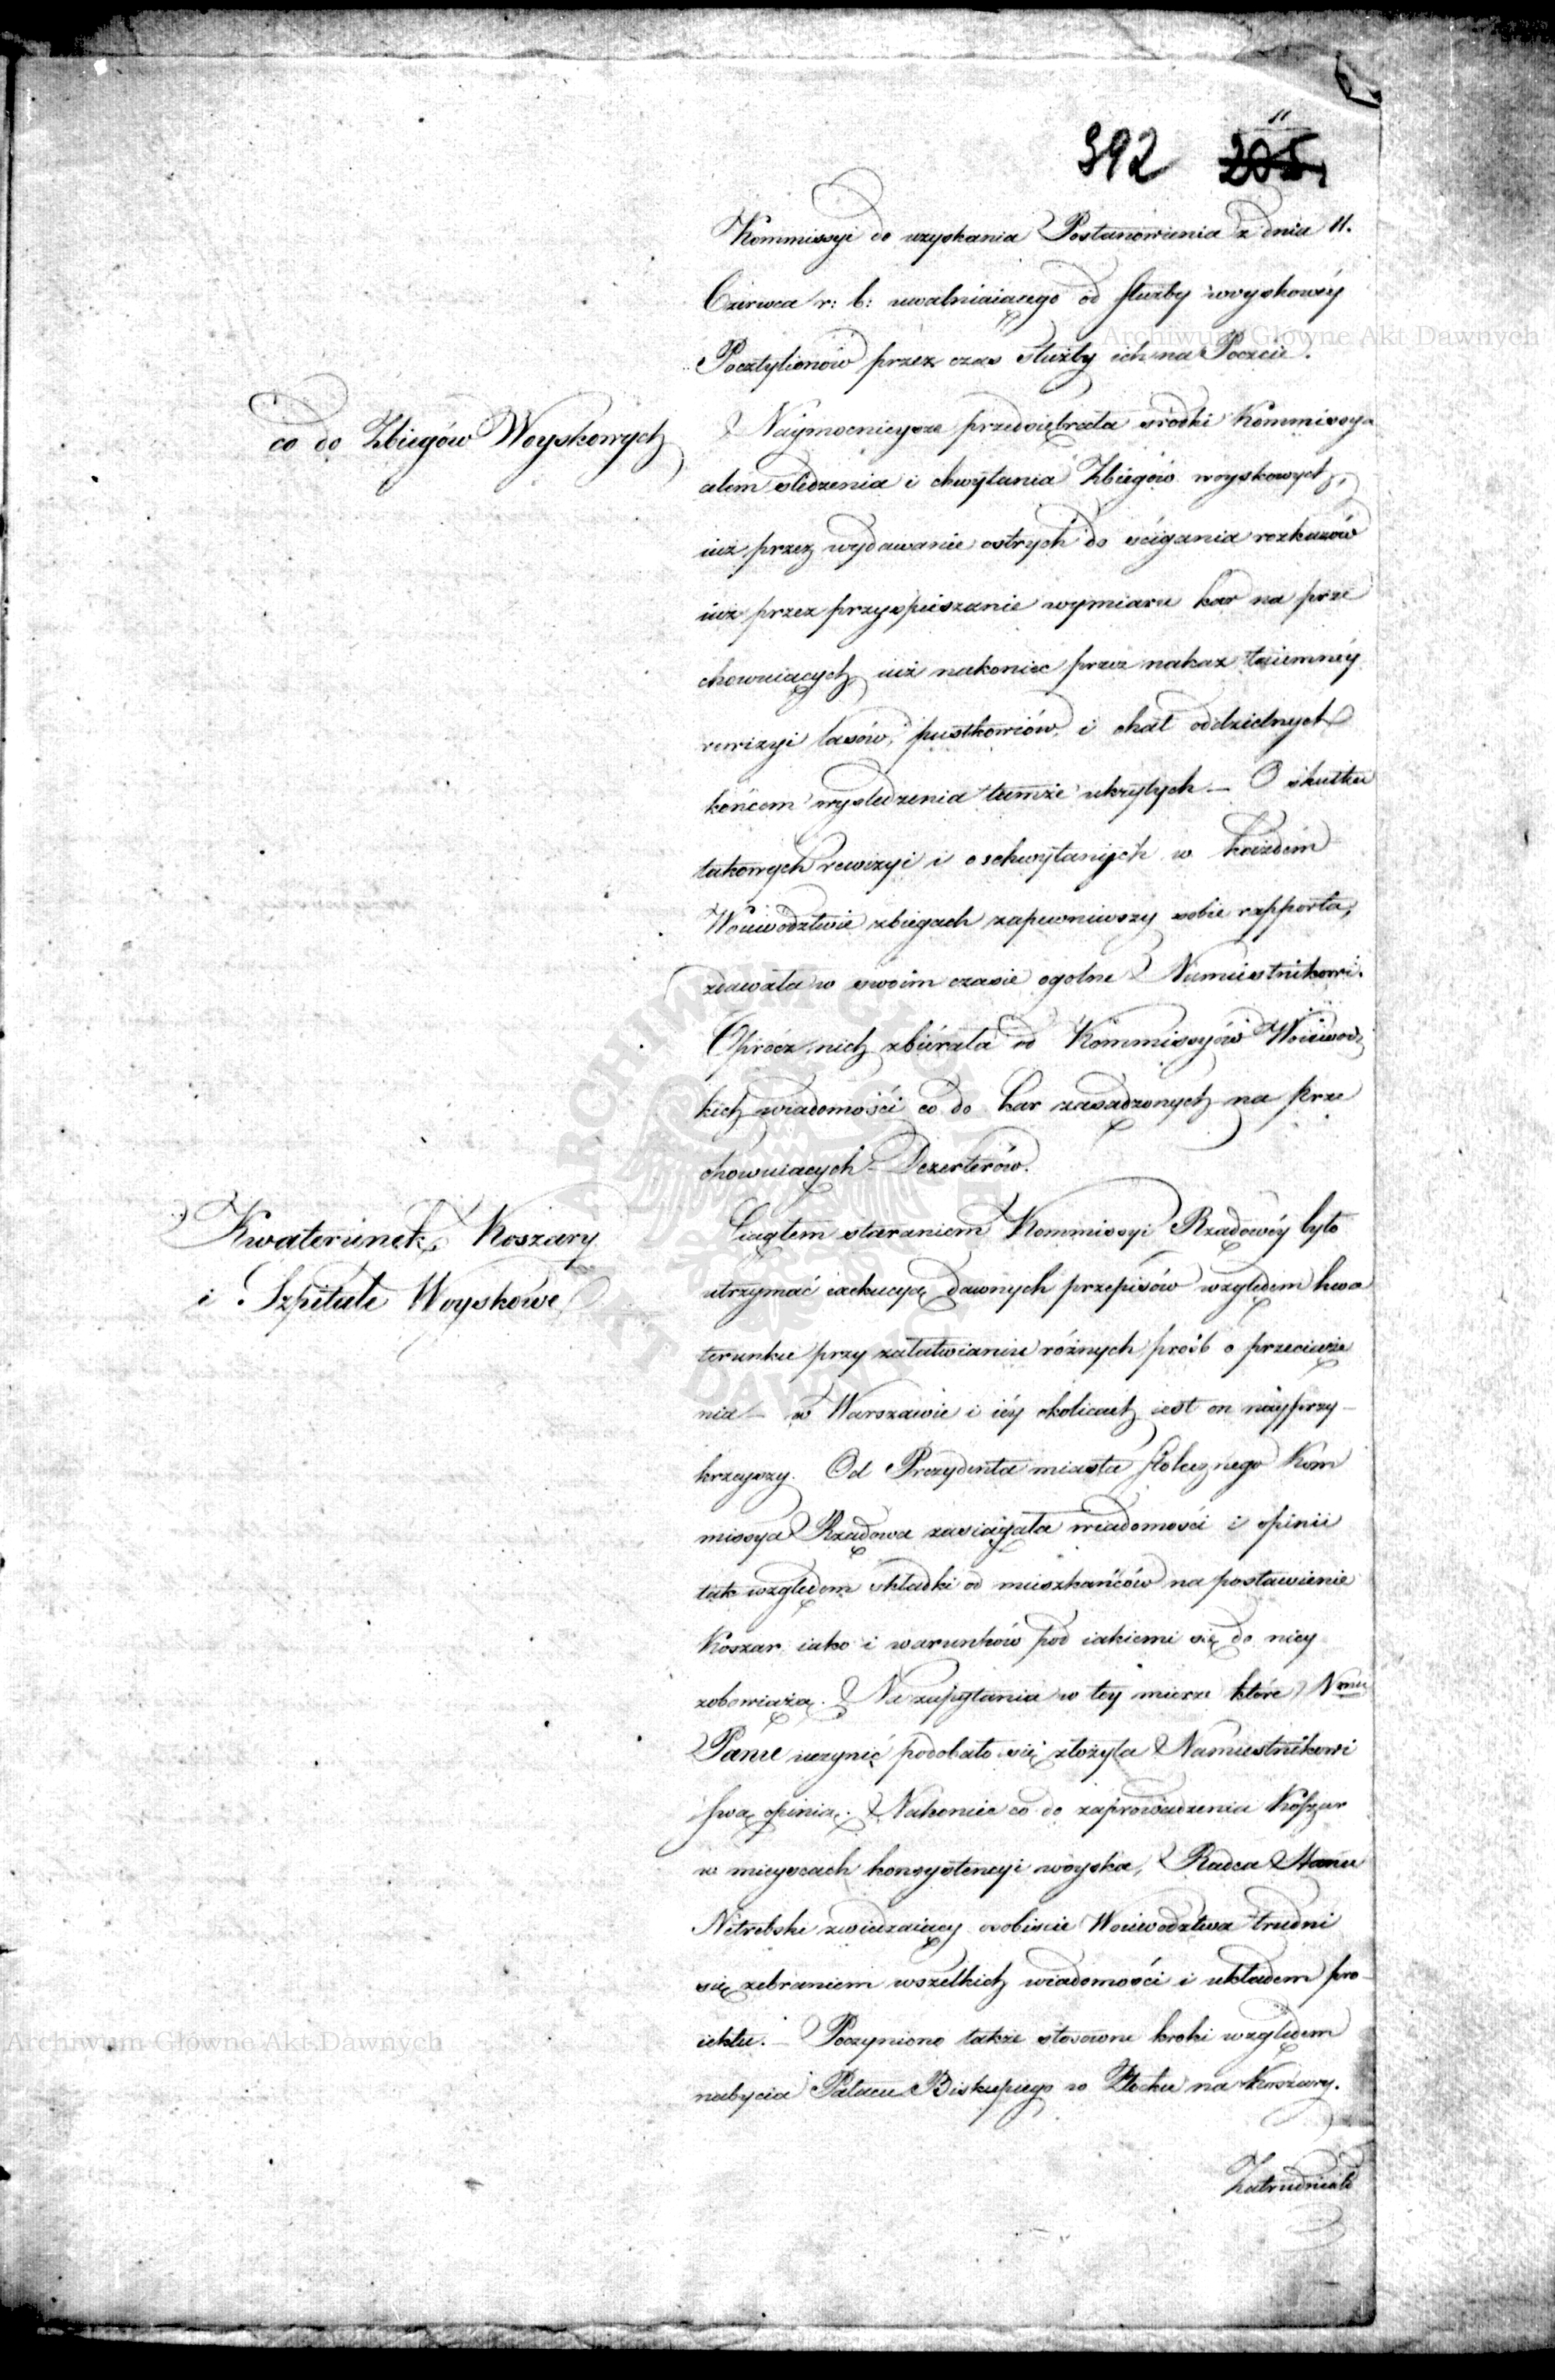 392 205
11
Kommissyi do uzyskania Postanowienia z dnia 11.
Czerwca r: b: uwalniaiącego od służby woyskowéy
Pocztylionów przez czas służby ich na Poczcie.
co do Zbiegów Woyskowych
Naymocnieysze przedsiębrała srodki Kommissya
celem sledzenia i chwytania Zbiegów woyskowych,
iuż przez wydawanie ostrych do ścigania rozkazów
iuż przez przyspieszanie wymiaru kar na prze
chowuiących, iuż nakoniec przez nakaz taiemnéy
rewizyi lasów, pustkowiów, i chat oddzielnych
końcem wysledzenia tamże ukrytych — O skutku
takowych rewizyi i o schwytanych w każdém
Wojewodztwie zbiegach zapewniwszy sobie rapporta,
zdawała w swoim czasie ogolne Namiestnikowi.
Oprócz nich zbiérała od Kommissyów Woiewodz
kich wiadomości co do kar zasadzonych na prze
chowuiących Dezerterów.
Kwaterunek, Koszary
i Szpitale Woyskowe
Ciągłem staraniem Kommissyi Rządowéy było
utrzymać exekucyą dawnych przepisów względem kwa
terunku przy załatwianiu różnych próśb o przeciąże
nia — w Warszawie i iéy okolicach iest on nayprzy-
krzeyszy. Od Prezydenta miasta stołecznego Kom
missya Rządowa zasiągała wiadomości i opinii
tak względem składki od mieszkańców na postawienie
Koszar iako i warunków pod iakiemi się do niey
zobowiążą. Na zapytania w tey mierze które Nmu
Panu uczynić podobało się złożyła Namiestnikowi
swą opinią. Nakoniec co do zaprowadzenia Koszar
w mieyscach konsystencyi woyska, Radca Stanu
Nitrebski zwiedzaiący osobiscie Woiewodztwa trudni
się zebraniem wszelkich wiadomości i układem pro-
iektu. — Poczyniono także stosowne kroki względem
nabycia Pałacu Biskupiego w Płocku na Koszary.
Zatrudniała
Archiwum Główne Akt Dawnych
Archiwum Główne Akt Dawnych
ARCHIWUM GŁÓWNE AKT DAWNYCH